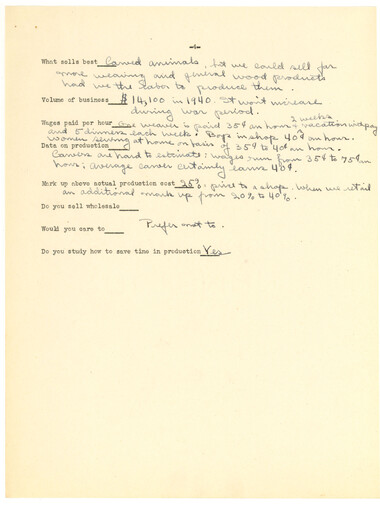 -4-
What sells best Carved animals, but we could sell far
more weaving and general wood products
had we the labor to produce them.
Volume of business $14,100 in 1940. It won't increase
during war period.
Wages paid per hour One weaver is paid 35¢ an hour + 2 weeks vacation with pay
and 5 dinners each week. Boys in shop 40¢ an hour.
Women sewing at home on basis of 35¢ to 40¢ an hour.
Data on production
Carvers are hard to estimate: wages run from 35¢ to 75¢ an
hour; average carver certainly earns 40¢.
Mark up above actual production cost 25% price to a shop. When we retail
an additional mark up from 20% to 40%.
Do you sell wholesale
Would you care to Prefer not to.
Do you study how to save time in production Yes